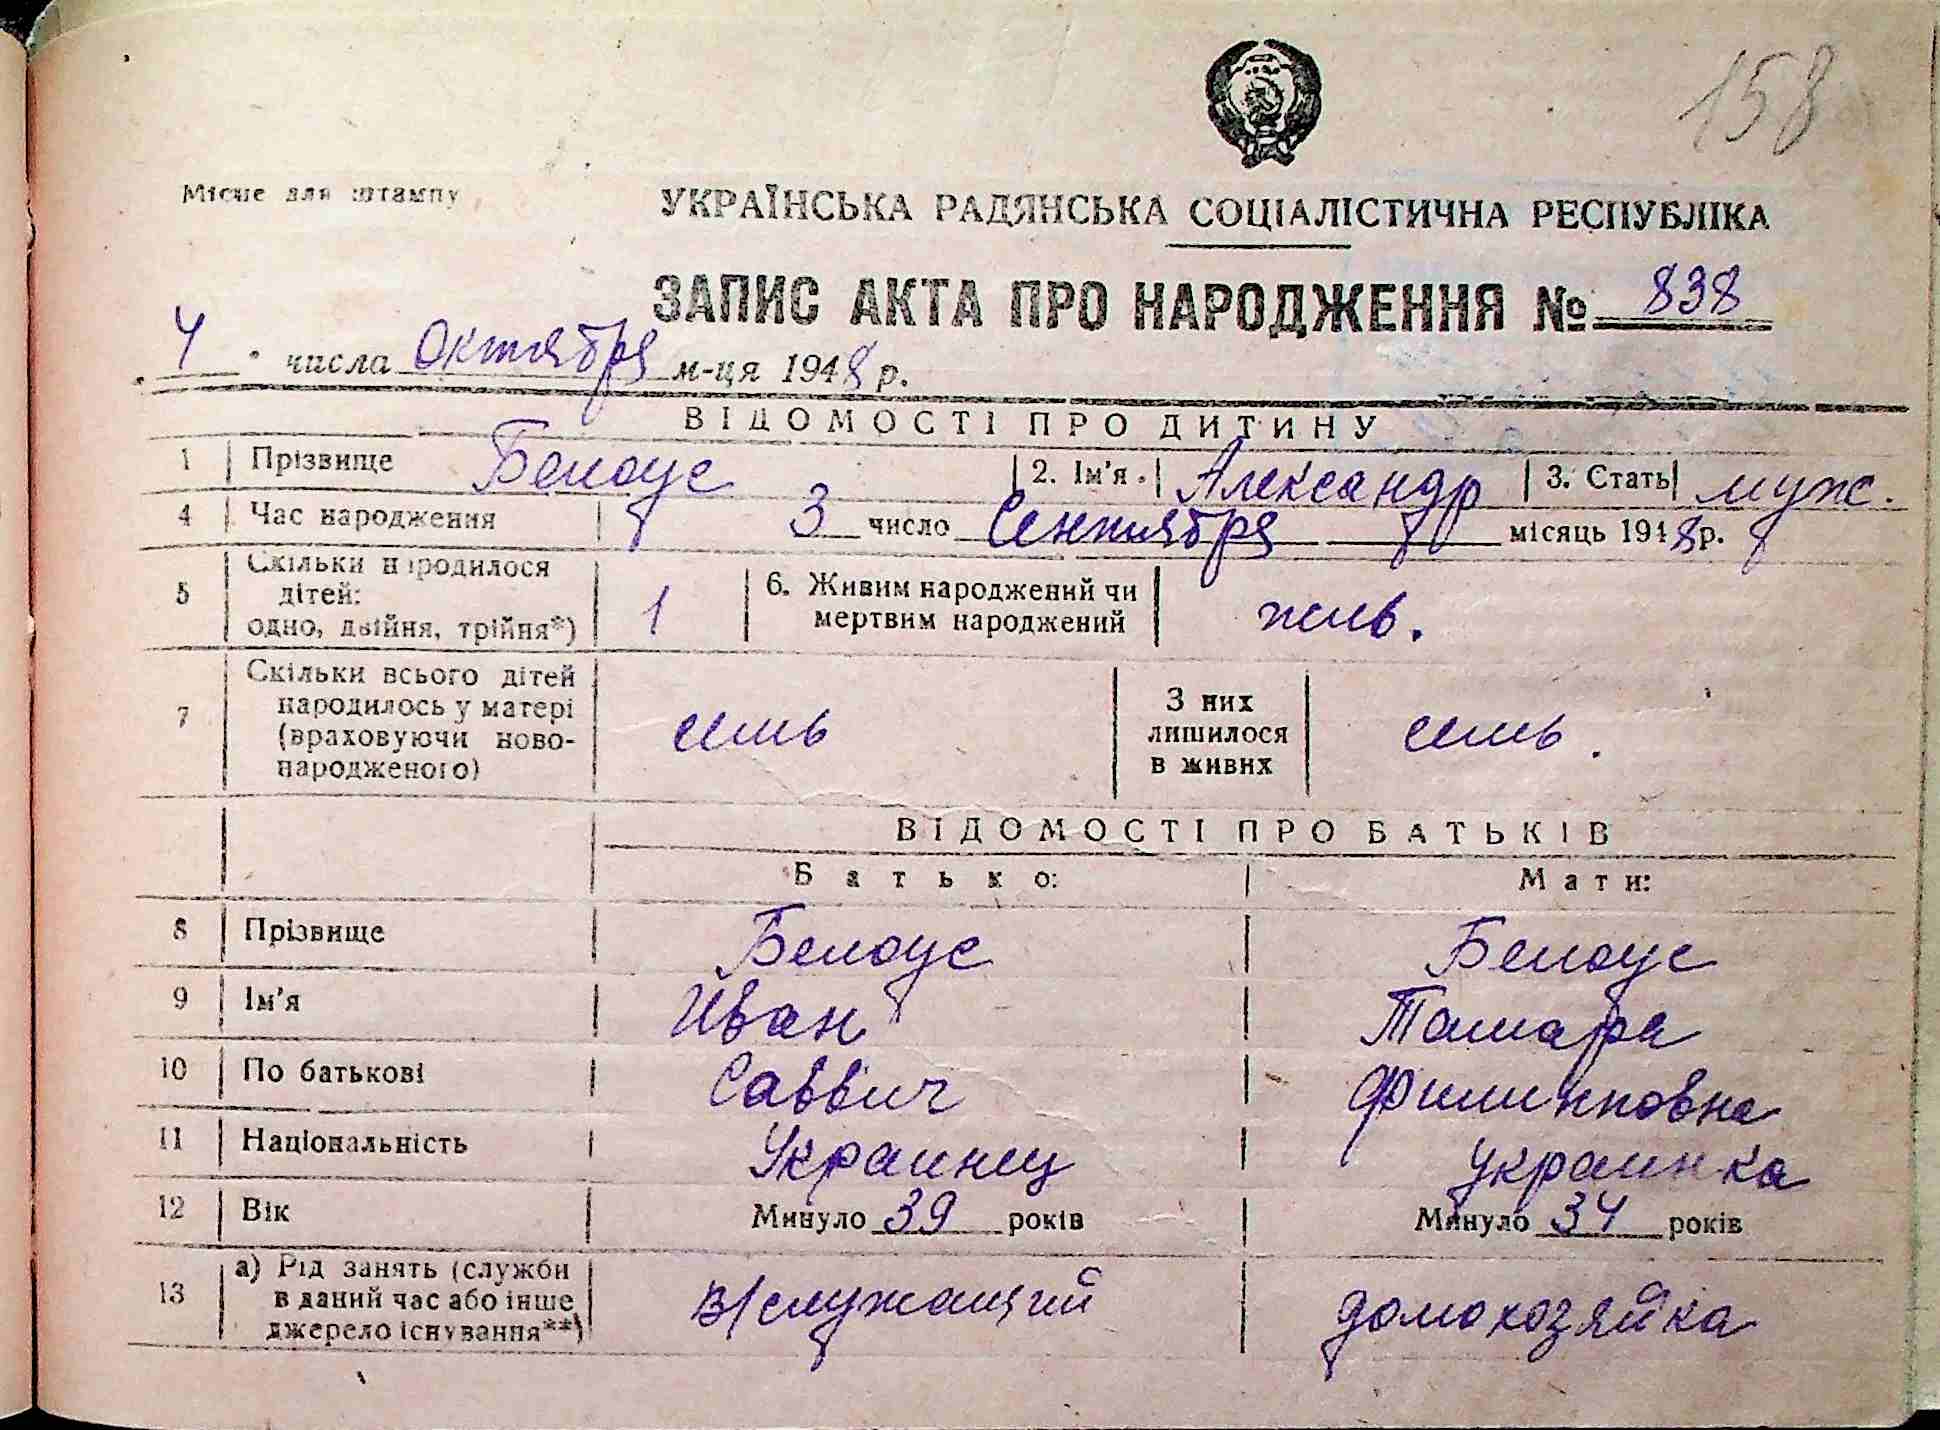 158
Місце для штампу
УКРАЇНСЬКА РАДЯНСЬКА СОЦІАЛІСТИЧНА РЕСПУБЛІКА
ЗАПИС АКТА ПРО НАРОДЖЕННЯ № 838
4 числа Октября м-ця 1948 р.
ВІДОМОСТІ ПРО ДИТИНУ
1 Прізвище Белоус 2. Ім'я Александр 3. Стать муж.
4 Час народження 3 число Сентября місяць 1948 р.
5 Скільки народилося дітей: одно, двійня, трійня*) 1 6. Живим народжений чи мертвим народжений жив.
7 Скільки всього дітей народилось у матері (враховуючи ново-народженого) семь З них лишилося в живих семь.
ВІДОМОСТІ ПРО БАТЬКІВ
Батько: Мати:
8 Прізвище Белоус Белоус
9 Ім'я Иван Тамара
10 По батькові Саввич Филипповна
11 Національність Украинец украинка
12 Вік Минуло 39 років Минуло 34 років
13 а) Рід занять (служби в даний час або інше джерело існування**) в/служащий домохозяйка